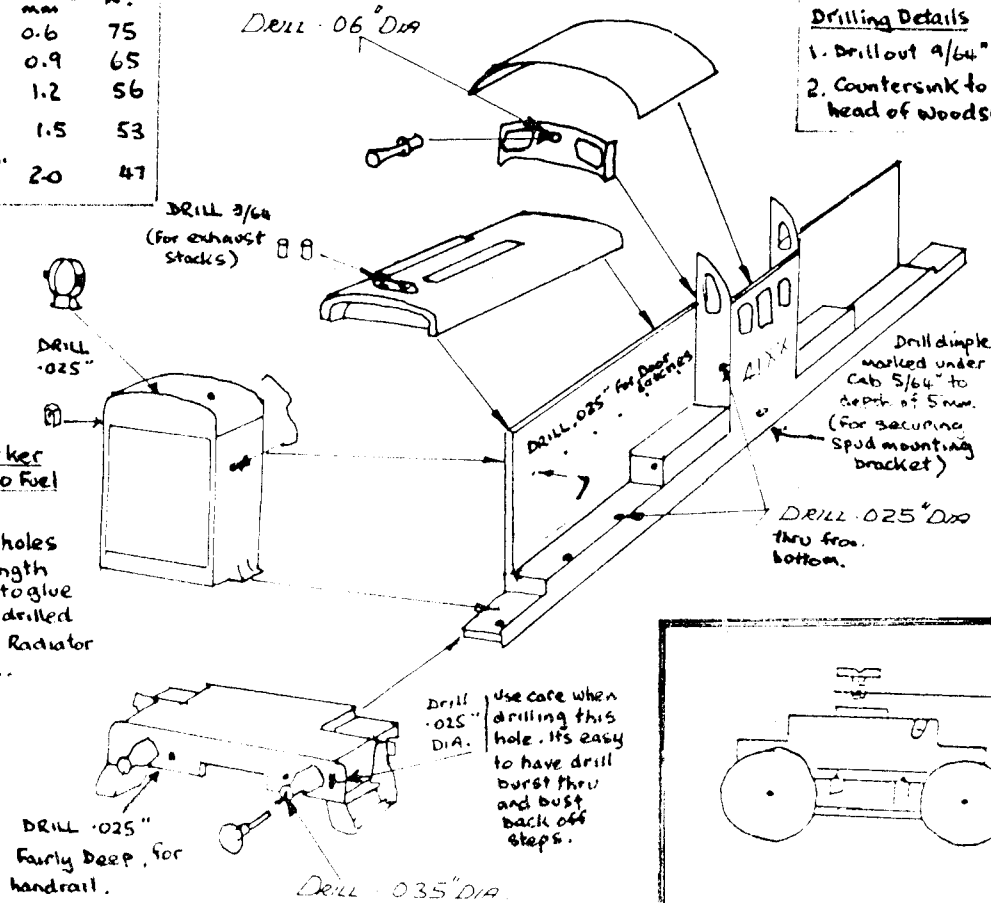 mm
0.6 75
0.9 65
1.2 56
1.5 53
2.0 47
DRILL .06" DIA
Drilling Details
1. Drill out 9/64"
2. Countersink to
head of
DRILL 3/64
(For exhaust
stacks)
DRILL
.025"
to Fuel
holes
to glue
drilled
Radiator
DRILL .025" For Door
Latches
41XX
Drill dimple
marked under
Cab 5/64" to
depth of 5mm.
(For securing
Spud mounting
bracket)
DRILL .025" DIA
thru from
bottom.
Drill
.025"
DIA.
Use care when
drilling this
hole. Its easy
to have drill
burst thru
and bust
back off
steps.
DRILL .025"
Fairly Deep, for
handrail.
DRILL .035" DIA.